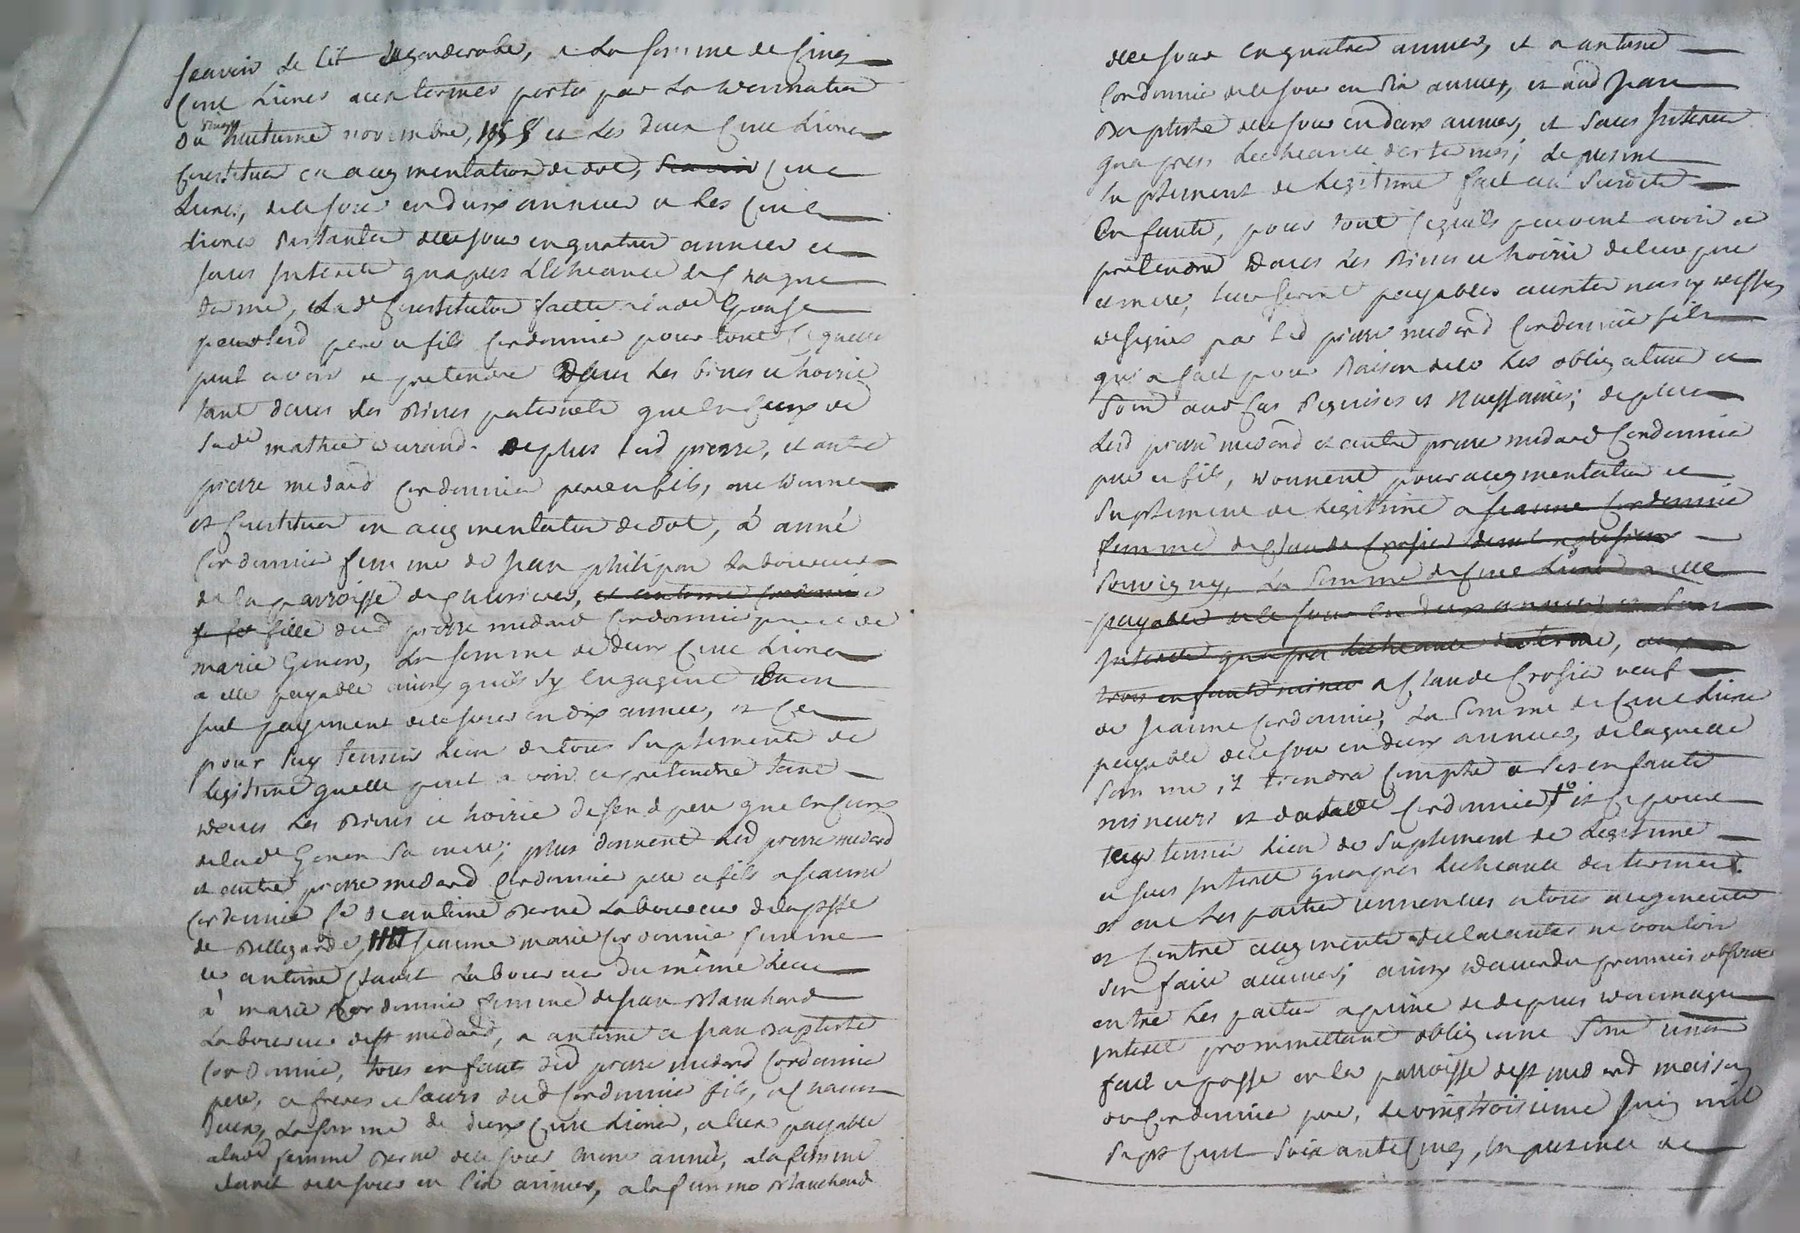 scavoir le lit la garderobe, et la somme de cinq
cent livres aux termes portés par la donnation
du huictieme novembre, et les deux cent livres
constitués en augmentation de dot, scavoir cent
livres, de ce jour en deux années et les cent
livres restantes de ce jour en quatre années et
sans interets qu'apres l'echeance de chaque
terme, lad constitution faitte a lad
par lesd pere et fils Cordonnier pour tout ce quelle
peut avoir et pretendre dans les biens et hoirie
tant dans les biens paternels que en ceux de
lade mathie durand. de plus led pierre, et autre
pierre medard Cordonnier pere et fils, ont donné
et constitué en augmentation de dot, à anne
Cordonnier femme de jean philipon laboureur
de la parroisse de et antoine Cordonnier
fille dud pierre medard Cordonnier pere et de
marie Genon, la somme de deux cent livres
a elle payable ainsy quils sy engagent en un
seul payement de ce jour en dix années, et ce
pour luy tennir lieu de tous suplements de
legitime quelle peut avoir et pretendre tant
dans les biens et hoirie de sond pere que en ceux
de lade Genon sa mere; plus donnent led pierre medard
et autre pierre medard Cordonnier pere et fils a jeanne
Cordonnier fe de antoine Berne laboureur de la psse
de Bellegarde, jeanne marie Cordonnier femme
de antoine laboureur du même lieu
à marie Cordonnier femme de jean Blanchard
laboureur de st medard, a antoine et jean Baptiste
Cordonnier, tous enfants dud pierre medard Cordonnier
pere, et freres et sœurs dud Cordonnier fils, a chacun
deux, la somme de deux cent livres, a eux payable
a lade femme Berne de ce jour en année, a la femme
de ce jour en six années, a la femme Blanchard
de ce jour en quatre années, et a antoine
Cordonnier de ce jour en six années, et aud jean
Baptiste de ce jour en deux années, et sans interets
qu'apres l'echeance des termes; le present
suplement de legitime fait aux susdits
enfants, pour tout ce quils peuvent avoir et
pretendre dans les biens et hoirie de leur pere
et mere, leur seront payables aux termes cy dessus
designés par led pierre medard Cordonnier fils
qui a fait pour raison de ce les obligations et
soumissions aux cas requises et necessaires; de plus
led pierre medard et autre pierre medard Cordonnier
pere et fils, donnent pour augmentation et
suplement de legitime a jeanne Cordonnier
femme de Claude Crosier
Souvigny, la somme de cent livres a elle
payable de ce jour en deux années et sans
interets qu'apres l'echeance du terme, aux
trois enfants mineurs a Claude Crosier veuf
de jeanne Cordonnier, la somme de cent livres
payable de ce jour en deux années, de laquelle
somme il tiendra compte a ses enfants
mineurs et de lade Cordonnier, et ce pour
leur tennir lieu de suplement de legitime
et sans interets qu'apres l'echeance des termes.
et ont les parties renoncées a tous augments
et contre augments declarantes ne vouloir
s'en faire aucuns; ainsy a
entre les parties a peine de depens dommages
interets promettant obligeant
fait et passé en la parroisse de st medard maison
du Cordonnier pere, le vingt troisieme juin mil
sept cent soixante cinq, en presence de